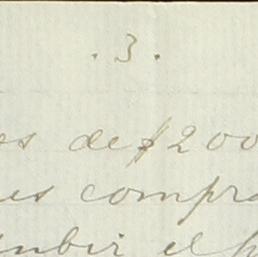 . 3 .
es de $200
es compra
inbir el p